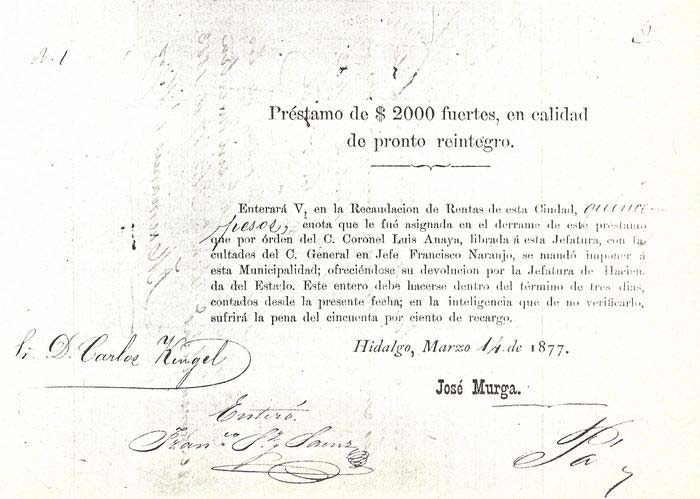 N. 1
Préstamo de $ 2000 fuertes, en calidad
de pronto reintegro.
Enterará V, en la Recaudacion de Rentas de esta Ciudad, quince
pesos, cuota que le fué asignada en el derrame de este préstamo
que por órden del C. Coronel Luis Anaya, librada á esta Jefatura, con
cultades del C. General en Jefe Francisco Naranjo, se mandó imponer á
esta Municipalidad; ofreciéndose su devolucion por la Jefatura de Hacien-
da del Estado. Este entero debe hacerse dentro del término de tres dias,
contados desde la presente fecha; en la inteligencia que de no verificarlo,
sufrirá la pena del cincuenta por ciento de recargo.
Hidalgo, Marzo 14 de 1877.
Sr. D. Carlos Küngel
José Murga.
Enteró.